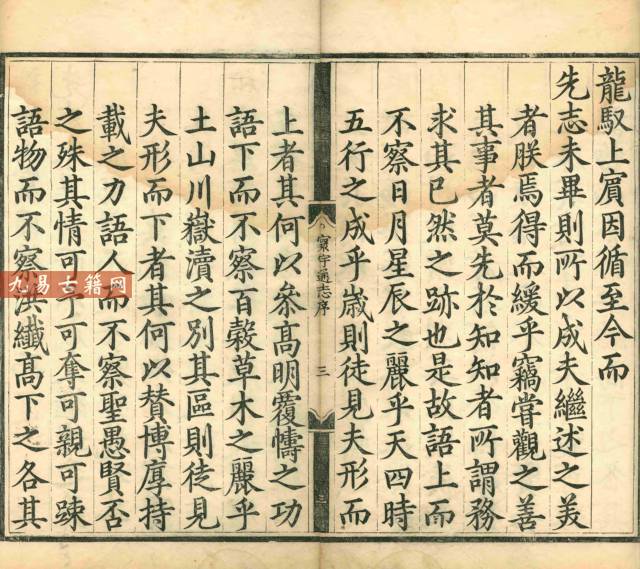 龍馭上賔因循至今而
先志未畢則所以成夫繼述之美
者朕焉得而緩乎竊甞觀之善
其事者莫先於知知者所謂務
求其已然之跡也是故語上而
不察日月星辰之麗乎天四時
五行之成乎歲則徒見夫形而
寰宇通志序
三
上者其何以叅髙明覆幬之功
語下而不察百榖草木之麗乎
土山川嶽瀆之別其區則徒見
夫形而下者其何以賛博厚持
載之力語人而不察聖愚賢否
之殊其情可予可奪可親可踈
語物而不察洪纖髙下之各其
九易古籍网